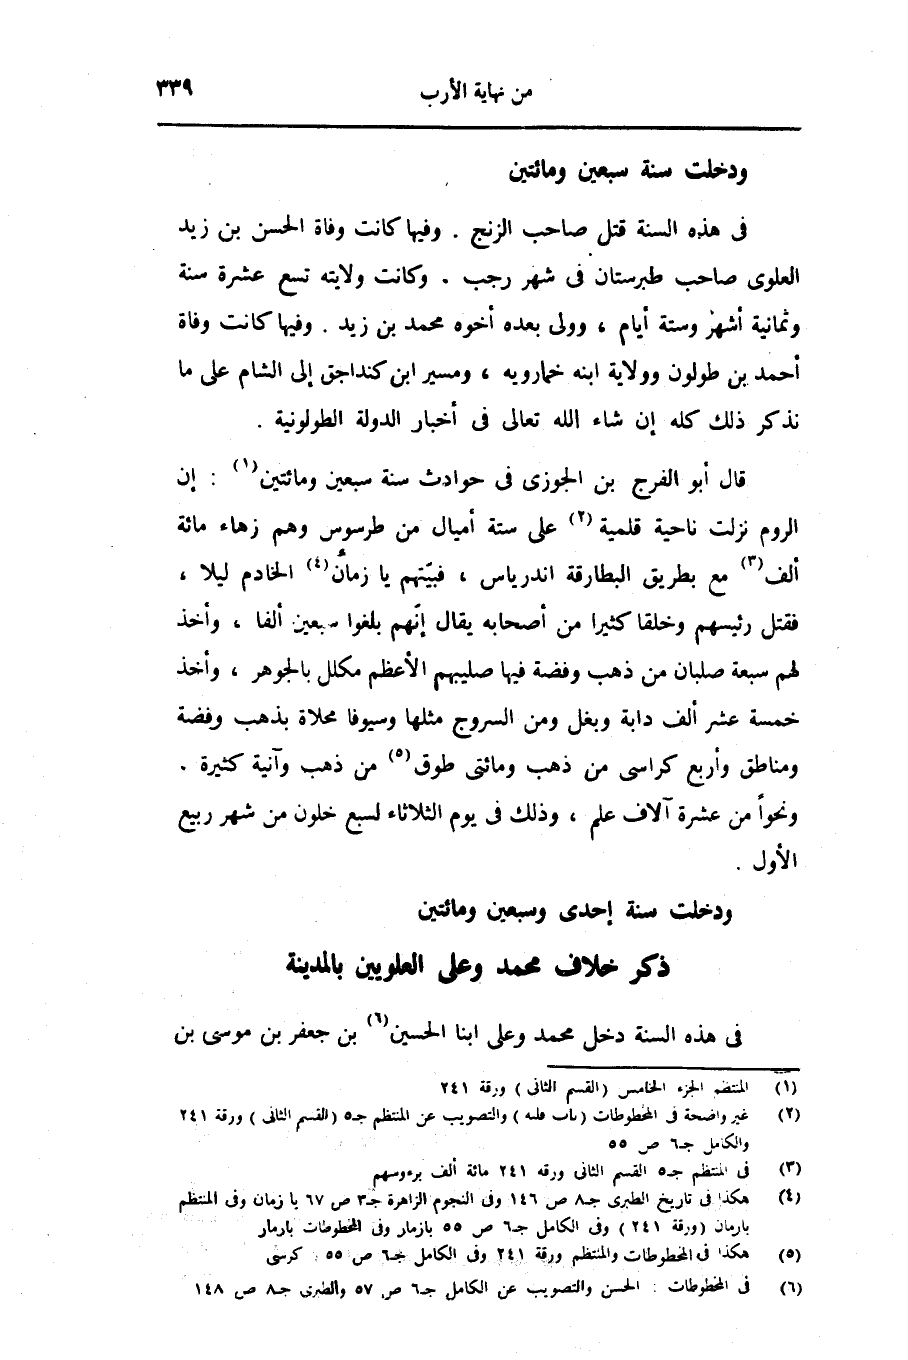 من نهاية الأرب ٣٣٩
ودخلت سنة سبعين ومائتين
فى هذه السنة قتل صاحب الزنج . وفيها كانت وفاة الحسن بن زيد
العلوى صاحب طبرستان فى شهر رجب . وكانت ولايته تسع عشرة سنة
وثمانية أشهر وستة أيام ، وولى بعده أخوه محمد بن زيد . وفيها كانت وفاة
أحمد بن طولون وولاية ابنه خمارويه ، ومسير ابن كنداجق إلى الشام على ما
نذكر ذلك كله إن شاء الله تعالى فى أخبار الدولة الطولونية .
قال أبو الفرج بن الجوزى فى حوادث سنة سبعين ومائتين(١) : إن
الروم نزلت ناحية قلمية (٢) على ستة أميال من طرسوس وهم زهاء مائة
ألف(٣) مع بطريق البطارقة اندرياس ، فبيّتهم يا زمانُ(٤) الخادم ليلا ،
فقتل رئيسهم وخلقا كثيرا من أصحابه يقال إنّهم بلغوا سبعين ألفا ، وأخذ
لهم سبعة صلبان من ذهب وفضة فيها صليبهم الأعظم مكلل بالجوهر ، وأخذ
خمسة عشر ألف دابة وبغل ومن السروج مثلها وسيوفا محلاة بذهب وفضة
ومناطق وأربع كراسى من ذهب ومائتى طوق(٥) من ذهب وآنية كثيرة .
ونحواً من عشرة آلاف علم ، وذلك فى يوم الثلاثاء لسبع خلون من شهر ربيع
الأول .
ودخلت سنة إحدى وسبعين ومائتين
ذكر خلاف محمد وعلى العلويين بالمدينة
فى هذه السنة دخل محمد وعلى ابنا الحسين(٦) بن جعفر بن موسى بن
(١) المنتظم الجزء الخامس (القسم الثانى) ورقة ٢٤١
(٢) غير واضحة فى المخطوطات ( ) والتصويب عن المنتظم جـ٥ (القسم الثانى) ورقة ٢٤١
والكامل جـ٦ ص ٥٥
(٣) فى المنتظم جـ٥ القسم الثانى ورقه ٢٤١ مائة ألف برءوسهم
(٤) هكذا فى تاريخ الطبرى جـ٨ ص ١٤٦ وفى النجوم الزاهرة جـ٣ ص ٦٧ يا زمان وفى المنتظم
بارمان (ورقة ٢٤١) وفى الكامل جـ٦ ص ٥٥ بازمار وفى المخطوطات بارمار
(٥) هكذا فى المخطوطات والمنتظم ورقة ٢٤١ وفى الكامل جـ٦ ص ٥٥ : كرسى
(٦) فى المخطوطات : الحسن والتصويب عن الكامل جـ٦ ص ٥٧ والطبرى جـ٨ ص ١٤٨